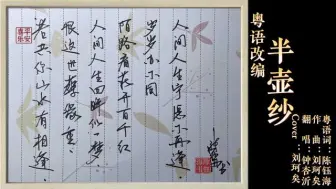 粤语改编
半壶纱
粤语词：陈钰海
作曲：刘珂矣
翻唱：钟杏沂
Cover：刘珂矣
人间人生宁愿不再逢
岁岁亦不同
陌路看花开百千红
人间人生回眸似一梦
恨此世难重
若共你山水有相逢
平安喜乐